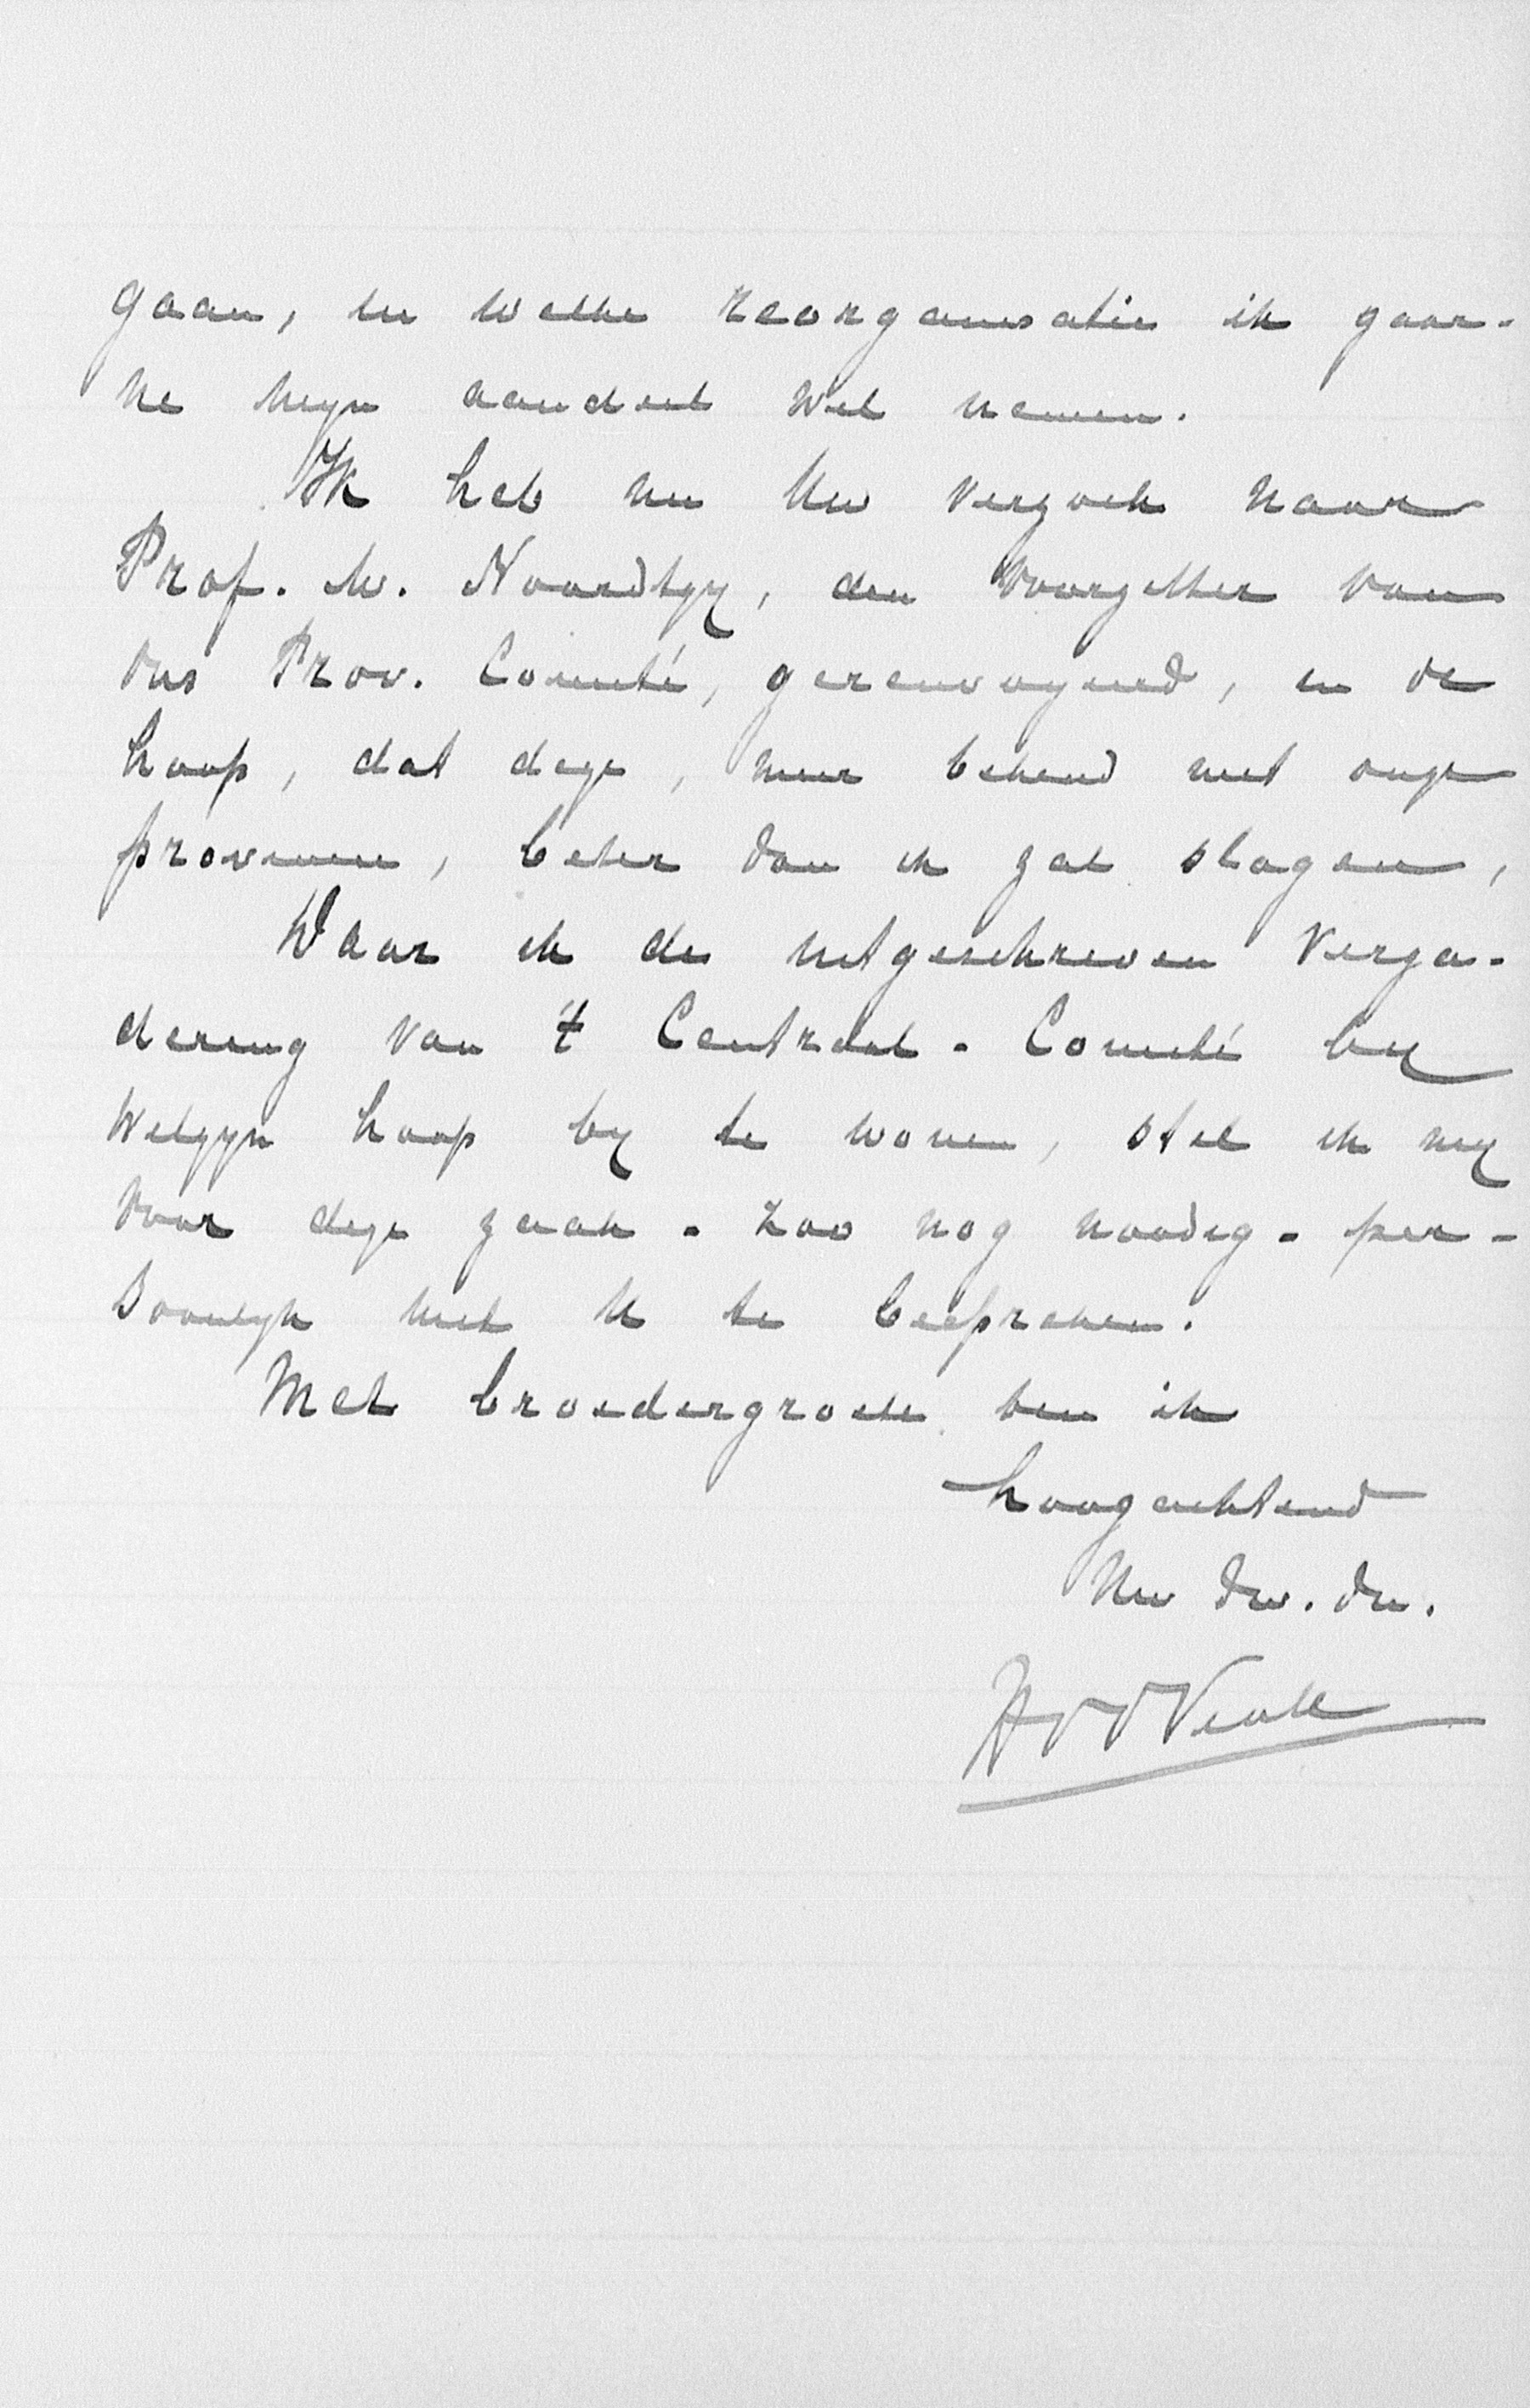 gaan, in welke reorganisatie ik gaar-
ne mijn aandeel wil nemen.
Ik heb nu Uw verzoek naar
Prof. M. Noordtzij, den voorzitter van
ons Prov. Comité, gerenvoyeerd, in de
hoop, dat deze, meer bekend met onze
provincie, beter dan ik zal slagen,
Waar ik de uitgeschreven Verga-
dering van 't Centraal-Comité bij
welzijn hoop bij te wonen, stel ik mij
voor deze zaak - zoo nog noodig - per-
soonlijk met U te bespreken.
Met broedergroete ben ik
hoogachtend
Uw dw. dn.